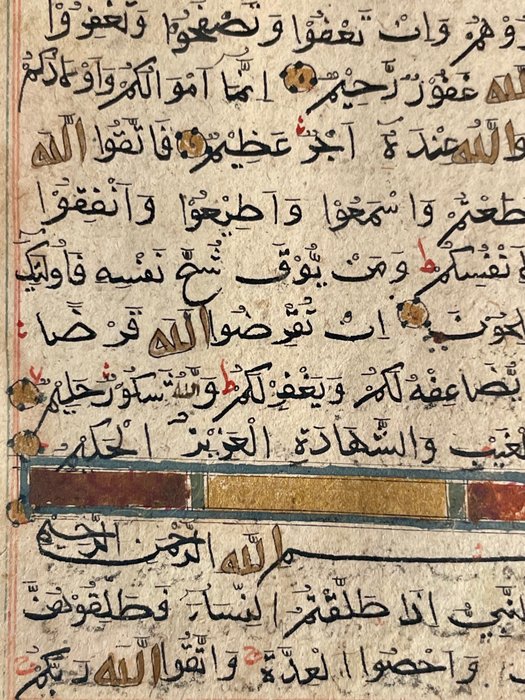 وهم وَاِنْ تَعْفُوْا وَتَصْفَحُوْا وَتَغْفِرُوْا
الله غَفُوْرٌ رَّحِيْمٌ اِنَّمَا اَمْوَالُكُمْ وَاَوْلَادُكُمْ
وَاللّٰهُ عِنْدَهٗ اَجْرٌ عَظِيْمٌ فَاتَّقُوا اللّٰهَ
طَعْتُمْ وَاسْمَعُوْا وَاَطِيْعُوْا وَاَنْفِقُوْا
اَنْفُسِكُمْ ط وَمَنْ يُّوْقَ شُحَّ نَفْسِهٖ فَاُولٰٓئِكَ
لحون اِنْ تُقْرِضُوا اللّٰهَ قَرْضًا
يُّضَاعِفْهُ لَكُمْ وَيَغْفِرْ لَكُمْ ط وَاللّٰهُ شَكُوْرٌ حَلِيْمٌ
لغَيْبِ وَالشَّهَادَةِ الْعَزِيْزُ الْحَكِيْمُ
ـم اللّٰهِ الرَّحْمٰنِ الرَّحِيْمِ
لنَّبِيُّ اِذَا طَلَّقْتُمُ النِّسَاءَ فَطَلِّقُوْهُنَّ
وَاَحْصُوا الْعِدَّةَ ج وَاتَّقُوا اللّٰهَ رَبَّكُمْ